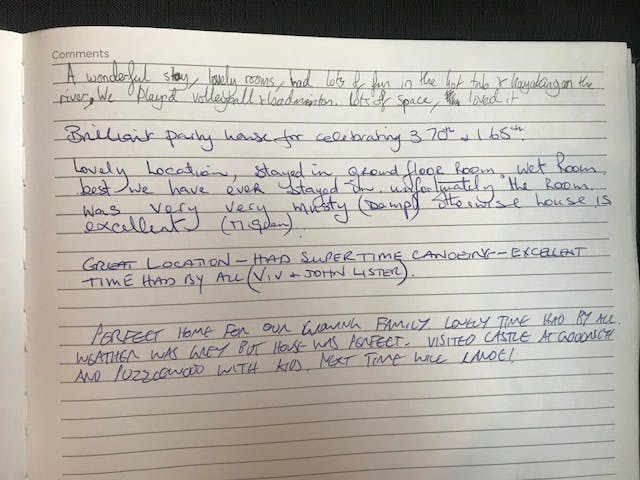 Comments
A wonderful stay, lovely rooms, had lots of fun in the hot tub & kayaking on the
river, We Playd volleyball & badminton. lots of Space, loved it
Brilliant party house for celebrating 3 70th & 1 65th.
Lovely Location, stayed in ground floor Room, Wet Room,
best we have ever stayed in. unfortunately the Room
was very very musty (Damp) otherwise house is
excellent
GREAT LOCATION - HAD SUPER TIME CANOEING - EXCELLENT
TIME HAD BY ALL (VIV & JOHN LISTER).
PERFECT HOME FOR OUR GROWING FAMILY. LOVELY TIME HAD BY ALL.
WEATHER WAS GREY BUT HOUSE WAS PERFECT. VISITED CASTLE AT
AND PUZZLEWOOD WITH KIDS. NEXT TIME WILL CANOE!